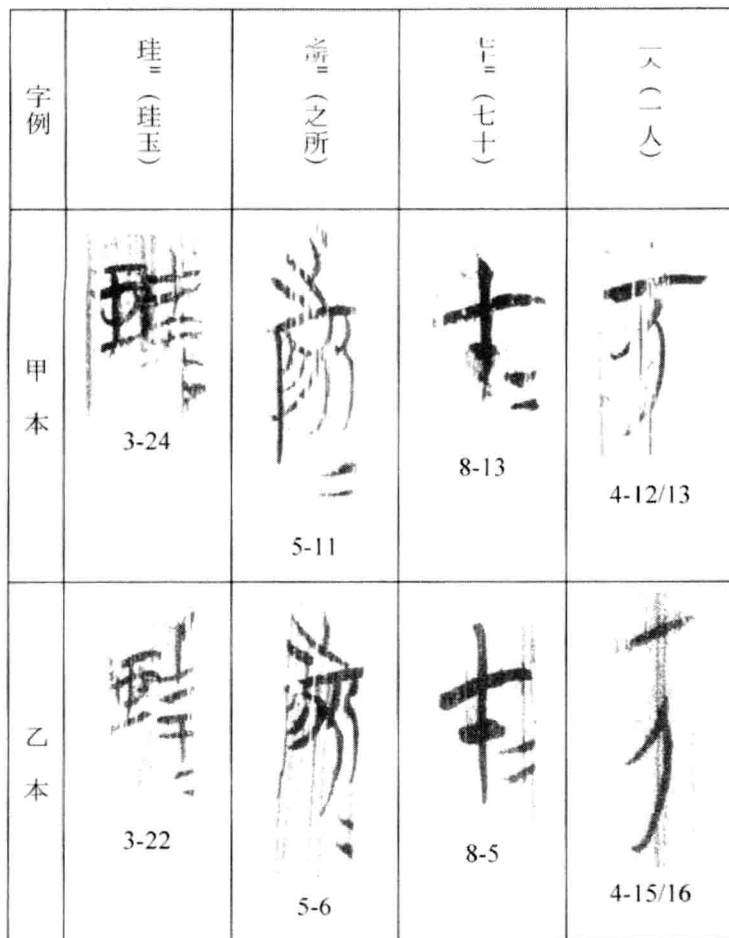 字例
珪=（珪玉）
之所=（之所）
七十=（七十）
一人（一人）
甲本
3-24
5-11
8-13
4-12/13
乙本
3-22
5-6
8-5
4-15/16